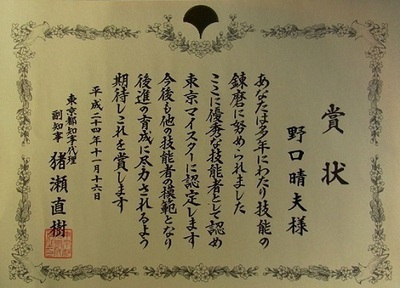 賞状
野口晴夫様
あなたは多年にわたり技能の
錬磨に努められました
ここに優秀な技能者として認め
東京マイスターに認定します
今後も他の技能者の模範となり
後進の育成に尽力されるよう
期待しこれを賞します
平成二十四年十一月十六日
東京都知事代理
副知事 猪瀬直樹